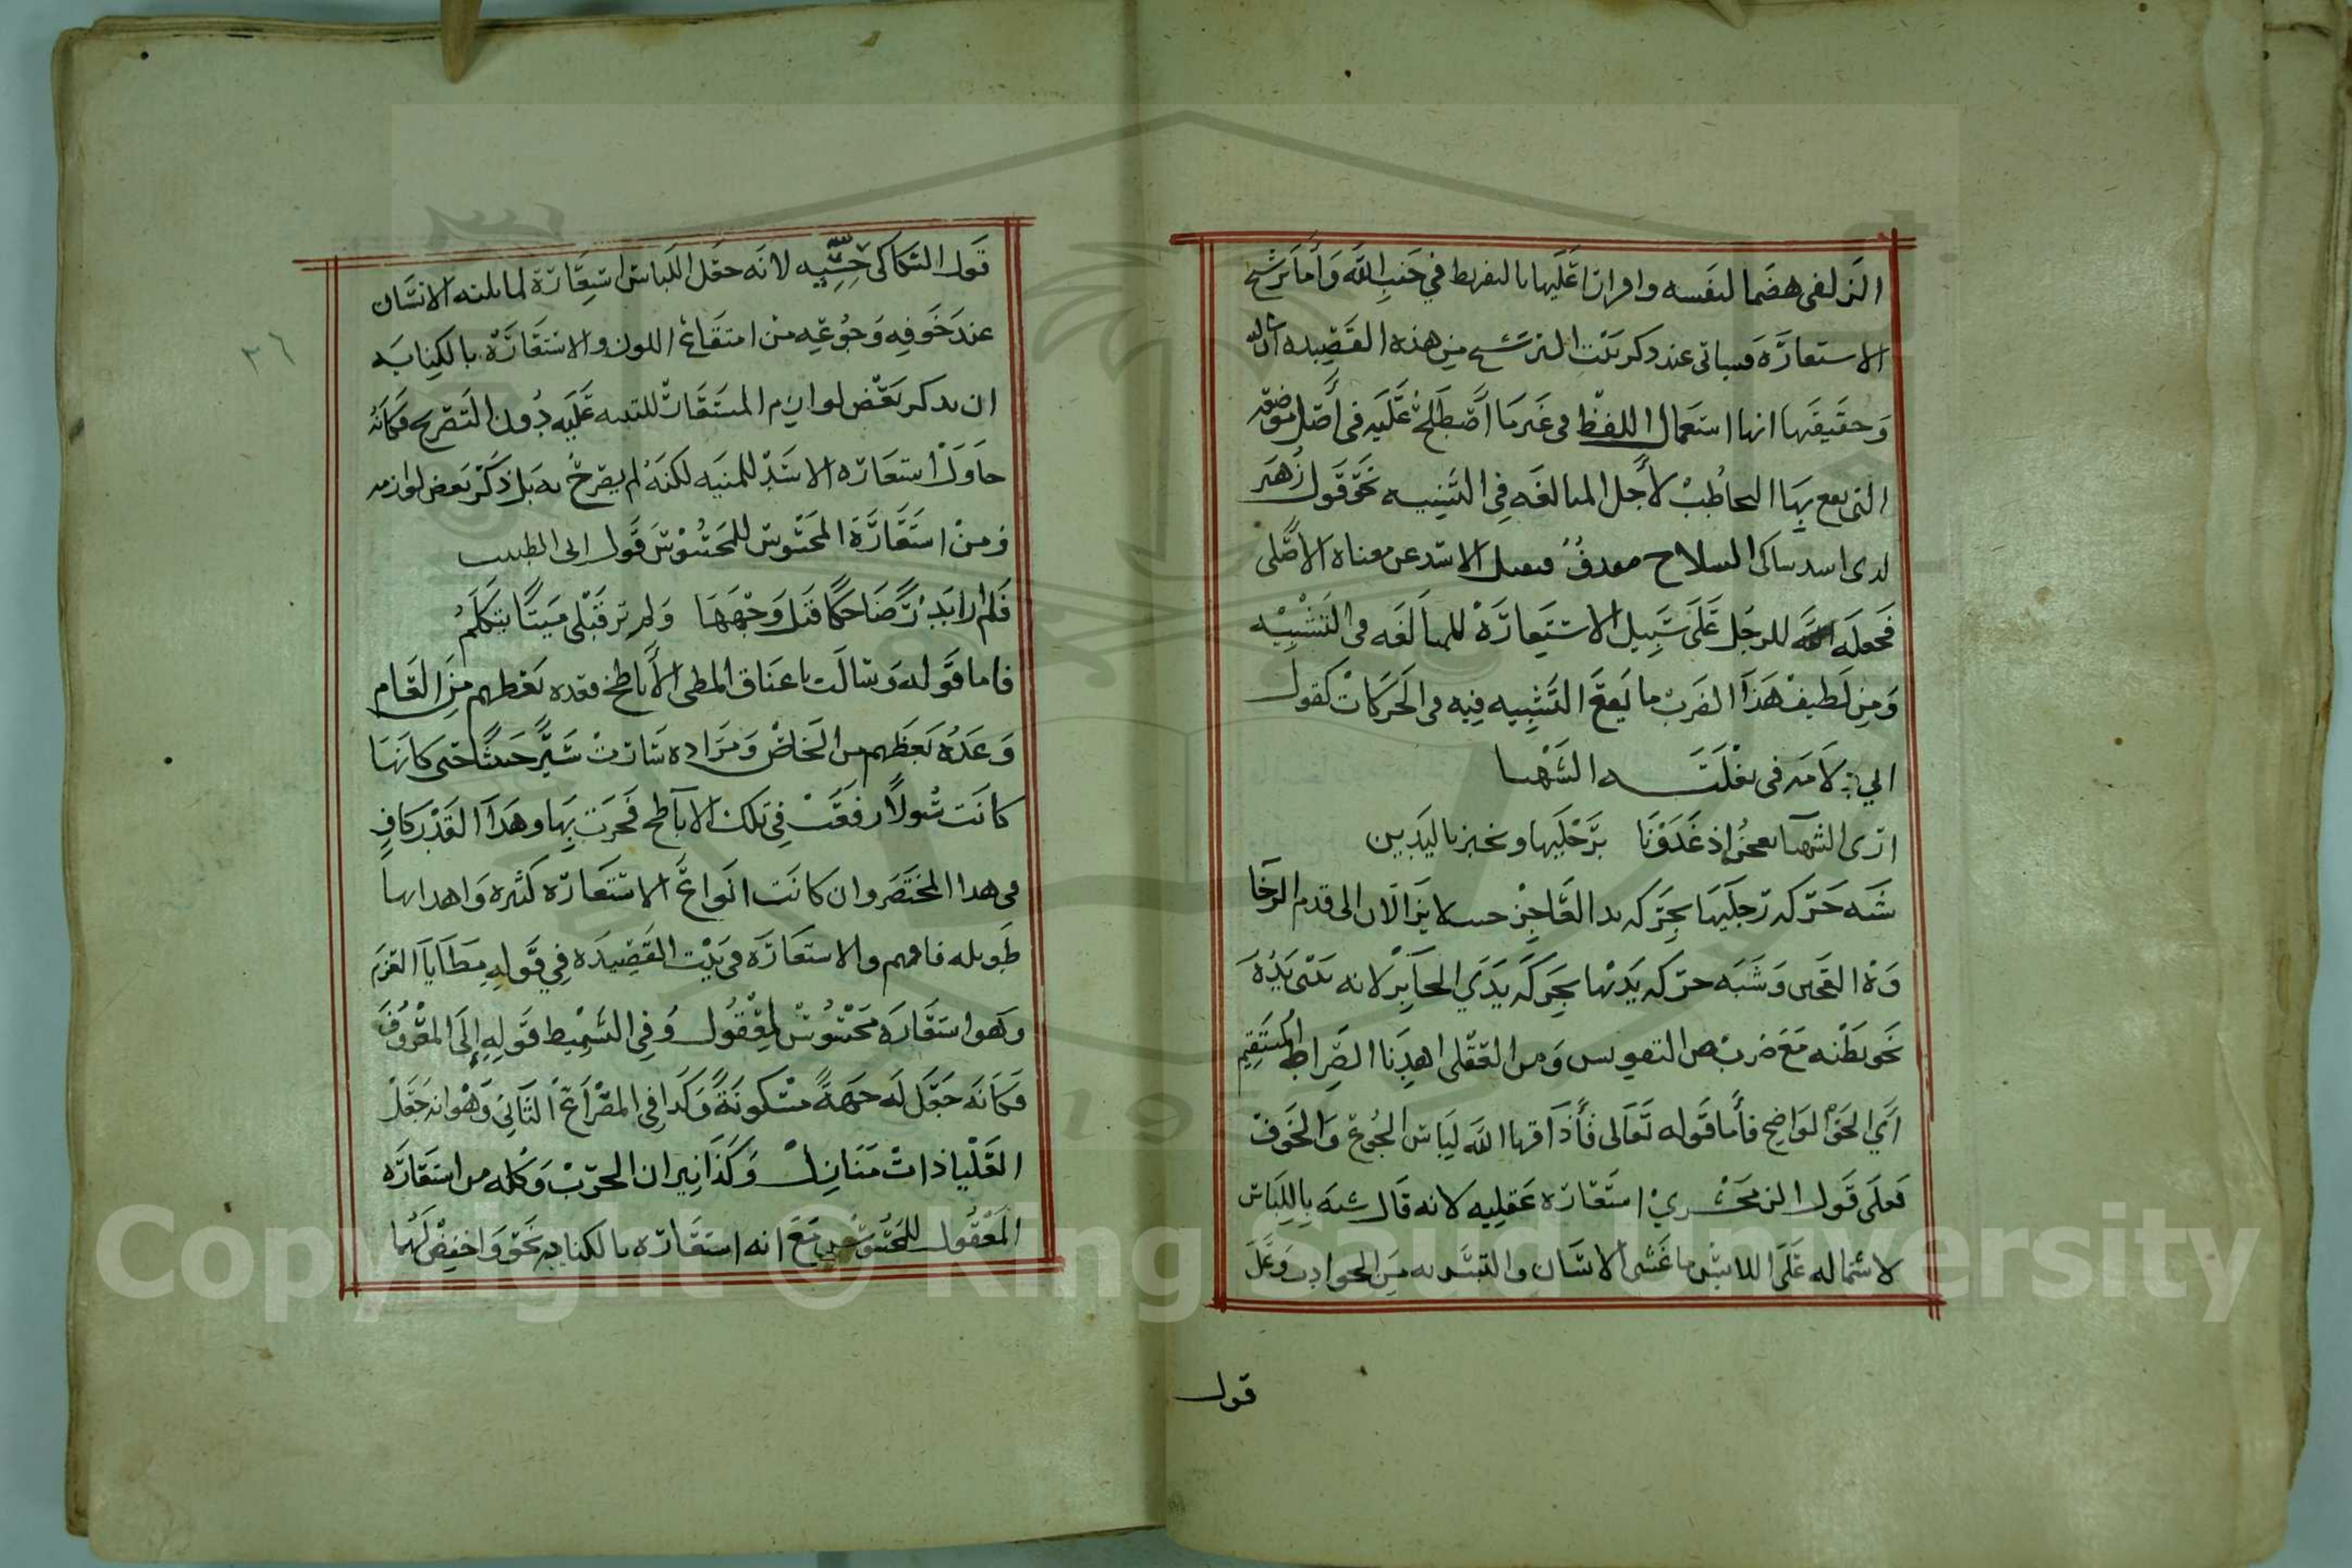 الزلفى هضما لنفسه واقرارا عليها بالتفريط في جنب الله واما ترشيح
الاستعارة فسياتي عند ذكر بيت الترشيح من هذه القصيده ان شا الله
وحقيقتها انها استعمال اللفظ في غير ما اصطلح عليه في اصل موضوعه
التي يقع بها التخاطب لأجل المبالغه في التشبيه نحو قول زهير
لدى اسد شاكى السلاح مقدف فنقل الاسد عن معناه الاصلى
فجعله للرجل على سبيل الاستعارة للمبالغه في التشبيه
ومن لطيف هذا الضرب ما يقع التشبيه فيه في الحركات كقول
ابي دلامه في بغلته الشهبا
ارى الشهبا تعجن اذ غدونا برجليها وتخبز باليدين
شبه حركه رجليها بحركه يد العاجن حيث لا يزالان الى قدم الرخا
وة العجين وشبه حركه يديها بحركه يدي الخابز لانه يثنى يده
نحو بطنه مع ضرب من التقويس ومن العقلى اهدنا الصراط المستقيم
اي الحق الواضح فأما قوله تعالى فأذاقها الله لباس الجوع والخوف
فعلى قول الزمخشري استعاره عقليه لانه قال شبه باللباس
لاشتماله على اللابس ما غشى الانسان والتبس به من الحوادث وعلى
قول
قول السكاكى حسيه لانه جعل اللباس استعارة لما يلبسه الانسان
عند خوفه وجوعه من امتقاع اللون والاستعارة بالكنايه
ان يذكر بعض لوازم المستعار للتنبيه عليه دون التصريح فكانه
حاول استعاره الاسد للمنيه لكنه لم يصرح به بل ذكر بعض لوازمه
ومن استعارة المحسوس للمحسوس قول ابي الطيب
فلم ار بدرا ضاحكا قبل وجهها ولم تر قبلى ميتا يتكلم
فاما قوله وسالت باعناق المطى الأباطح فعده بعظهم من العام
وعده بعظهم من الخاص ومراده سارت سيرا حثيثا حتى كانها
كانت سيولا وقعت في تلك الاباطح فجرت بها وهذا القدر كاف
في هذا المختصر وان كانت انواع الاستعاره كثيره واهدابها
طويله فافهم والاستعارة في بيت القصيدة في قوله مطايا العزم
وهو استعاره محسوس لمعقول وفي التسميط قوله إلى المعروف
فكانه جعل له جهة مسكونة وكذا في المصراع الثاني وهو انه جعل
العليا ذات منازل وكذا نيران الحرب وكله من استعاره
المعقول للمحسوس مع انه استعاره بالكنايه نحو واخفض لهما
٢٦
Copyright © King Saud University